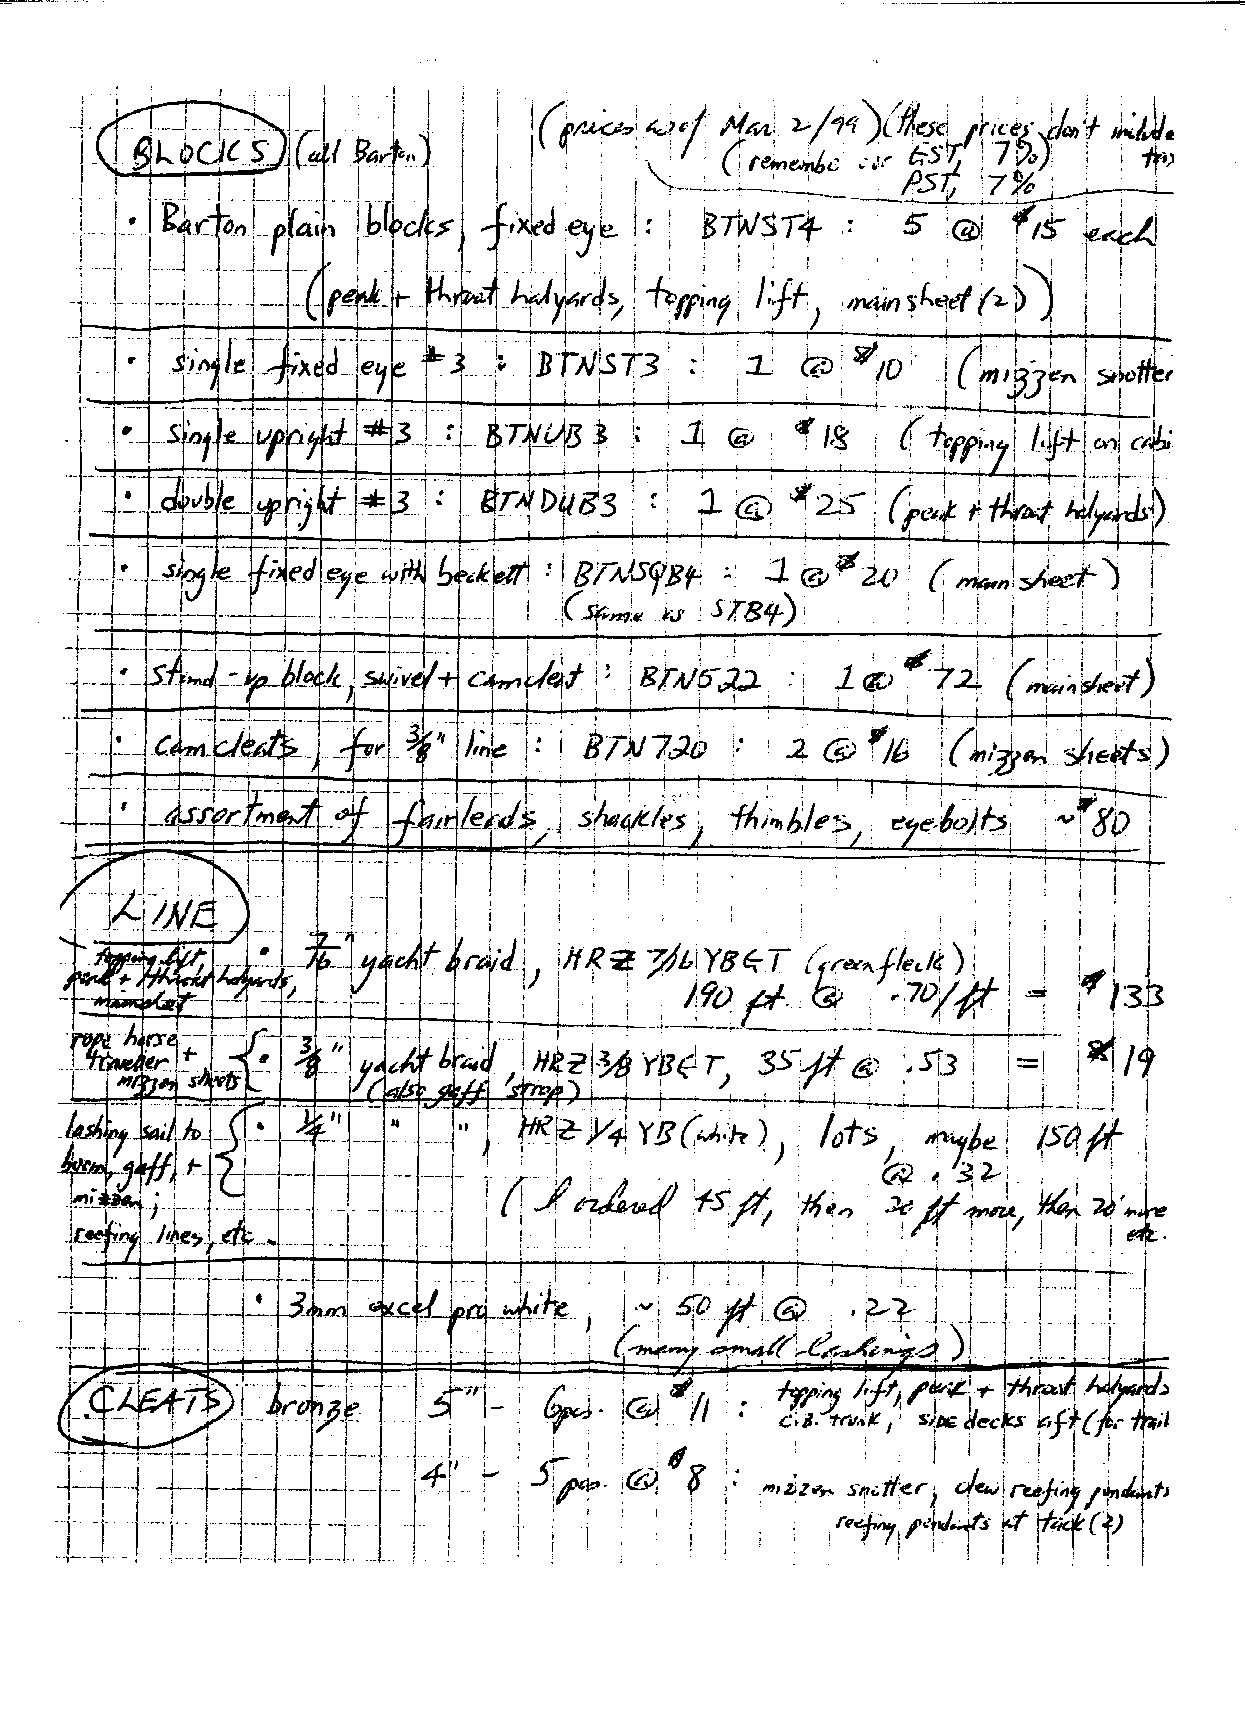 (prices as of Mar 2/99) (these prices don't include
BLOCKS (all Barton)
(remember our GST, 7%)
PST, 7%
• Barton plain blocks, fixed eye : BTNST4 : 5 @ $15 each
(peak + throat halyards, topping lift, mainsheet (2))
• single fixed eye #3 : BTNST3 : 1 @ $10 (mizzen snotter
• single upright #3 : BTNUB3 : 1 @ $18 (topping lift on cabi
• double upright #3 : BTNDUB3 : 1 @ $25 (peak + throat halyards)
• single fixed eye with beckett : BTNSQB4 : 1 @ $20 (mainsheet)
(same as STB4)
• stand-up block, swivel + camcleat : BTN522 : 1 @ $72 (mainsheet)
• camcleats, for 3/8" line : BTN720 : 2 @ $16 (mizzen sheets)
• assortment of fairleads, shackles, thimbles, eyebolts ~$80
LINE
topping lift,
peak + throat halyards,
mainsheet
• 7/16" yacht braid, HRZ 7/16 YBGT (greenfleck)
190 ft. @ .70/ft = $133
rope horse
traveller +
mizzen sheets
• 3/8" yacht braid, HRZ 3/8 YBGT, 35 ft @ .53 = $19
(also gaff 'strop)
lashing sail to
boom, gaff, +
mizzen;
reefing lines, etc.
• 1/4" " ", HRZ 1/4 YB (white), lots, maybe 150 ft
@ .32
(I ordered 45 ft, then 20 ft more, then 20' more
etc.
• 3mm excel pro white, ~ 50 ft @ .22
(many small lashings)
CLEATS bronze 5" - 6 pcs. @ $11 : topping lift, peak + throat halyards
C.B. trunk, side decks aft (for trail
4" - 5 pcs. @ $8 : mizzen snotter, clew reefing pendants
reefing pendants at tack (2)